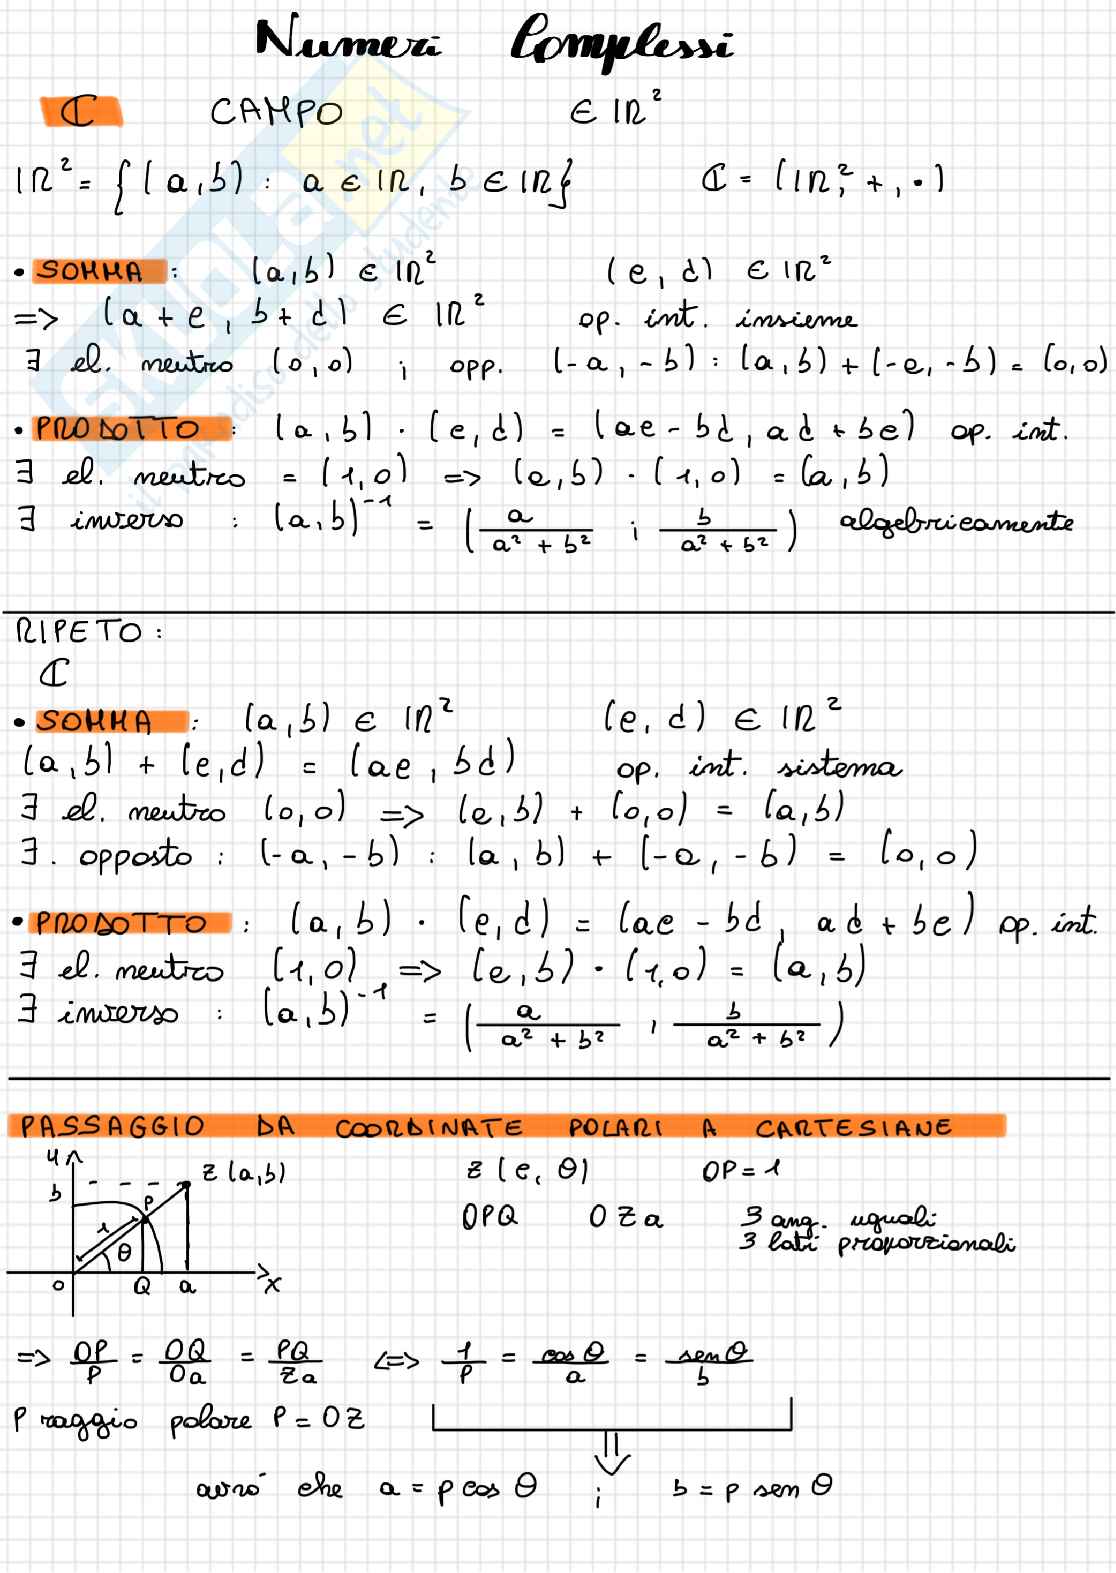 Numeri Complessi
ℂ CAMPO ∈ ℝ²
ℝ² = {(a,b) : a ∈ ℝ, b ∈ ℝ} ℂ = (ℝ², +, ·)
• SOMMA : (a,b) ∈ ℝ² (c,d) ∈ ℝ²
=> (a+c, b+d) ∈ ℝ² op. int. insieme
∃ el. neutro (0,0) ; opp. (-a,-b) : (a,b) + (-a,-b) = (0,0)
• PRODOTTO : (a,b) · (c,d) = (ac - bd, ad + bc) op. int.
∃ el. neutro = (1,0) => (a,b) · (1,0) = (a,b)
∃ inverso : (a,b)⁻¹ = (a/(a² + b²) ; b/(a² + b²)) algebricamente
RIPETO :
ℂ
• SOMMA : (a,b) ∈ ℝ² (c,d) ∈ ℝ²
(a,b) + (c,d) = (ac, bd) op. int. sistema
∃ el. neutro (0,0) => (a,b) + (0,0) = (a,b)
∃. opposto : (-a,-b) : (a,b) + (-a,-b) = (0,0)
• PRODOTTO : (a,b) · (c,d) = (ac - bd, ad + bc) op. int.
∃ el. neutro (1,0) => (a,b) · (1,0) = (a,b)
∃ inverso : (a,b)⁻¹ = (a/(a² + b²), b/(a² + b²))
PASSAGGIO DA COORDINATE POLARI A CARTESIANE
y z(a,b) z(ρ, θ) OP = 1
b P 1 θ OPQ OZa 3 ang. uguali
3 lati proporzionali
O Q a x
=> OP/ρ = OQ/Oa = PQ/Za <=> 1/ρ = cos θ/a = sen θ/b
ρ raggio polare ρ = OZ
avrò che a = ρ cos θ ; b = ρ sen θ
skuola.net
il paradiso dello studente